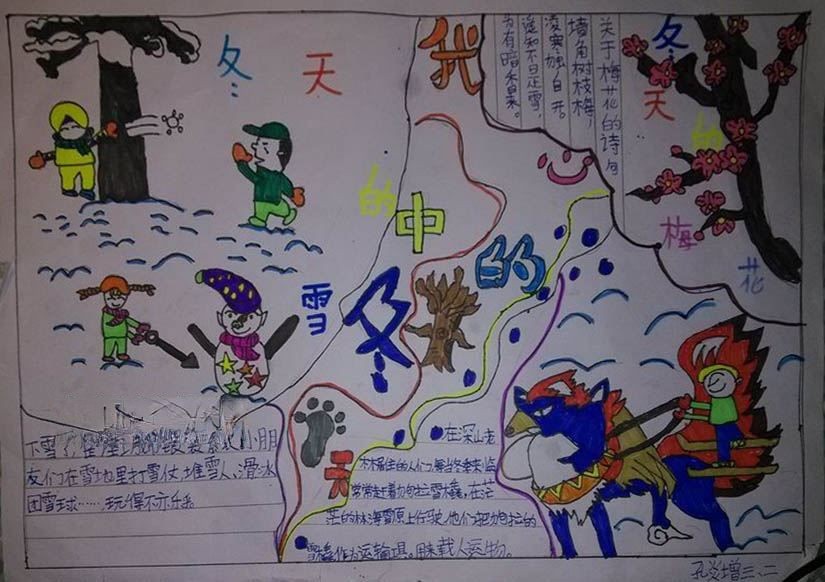 冬天
的
雪
我
中
的
冬
天
关于梅花的诗句
墙角树枝梅，
凌寒独自开。
遥知不是雪，
为有暗香来。
冬
天
的
梅
花
下雪了 小朋
友们在雪地里打雪仗、堆雪人、滑冰
团雪球……玩得不亦乐乎
在深山老
林居住的人们，每当冬季来临
常常赶着狗拉雪橇，在茫
茫的林海雪原上行驶，他们把狗拉的
雪橇作为运输工具。用来载人运物。
孔 增 三、二